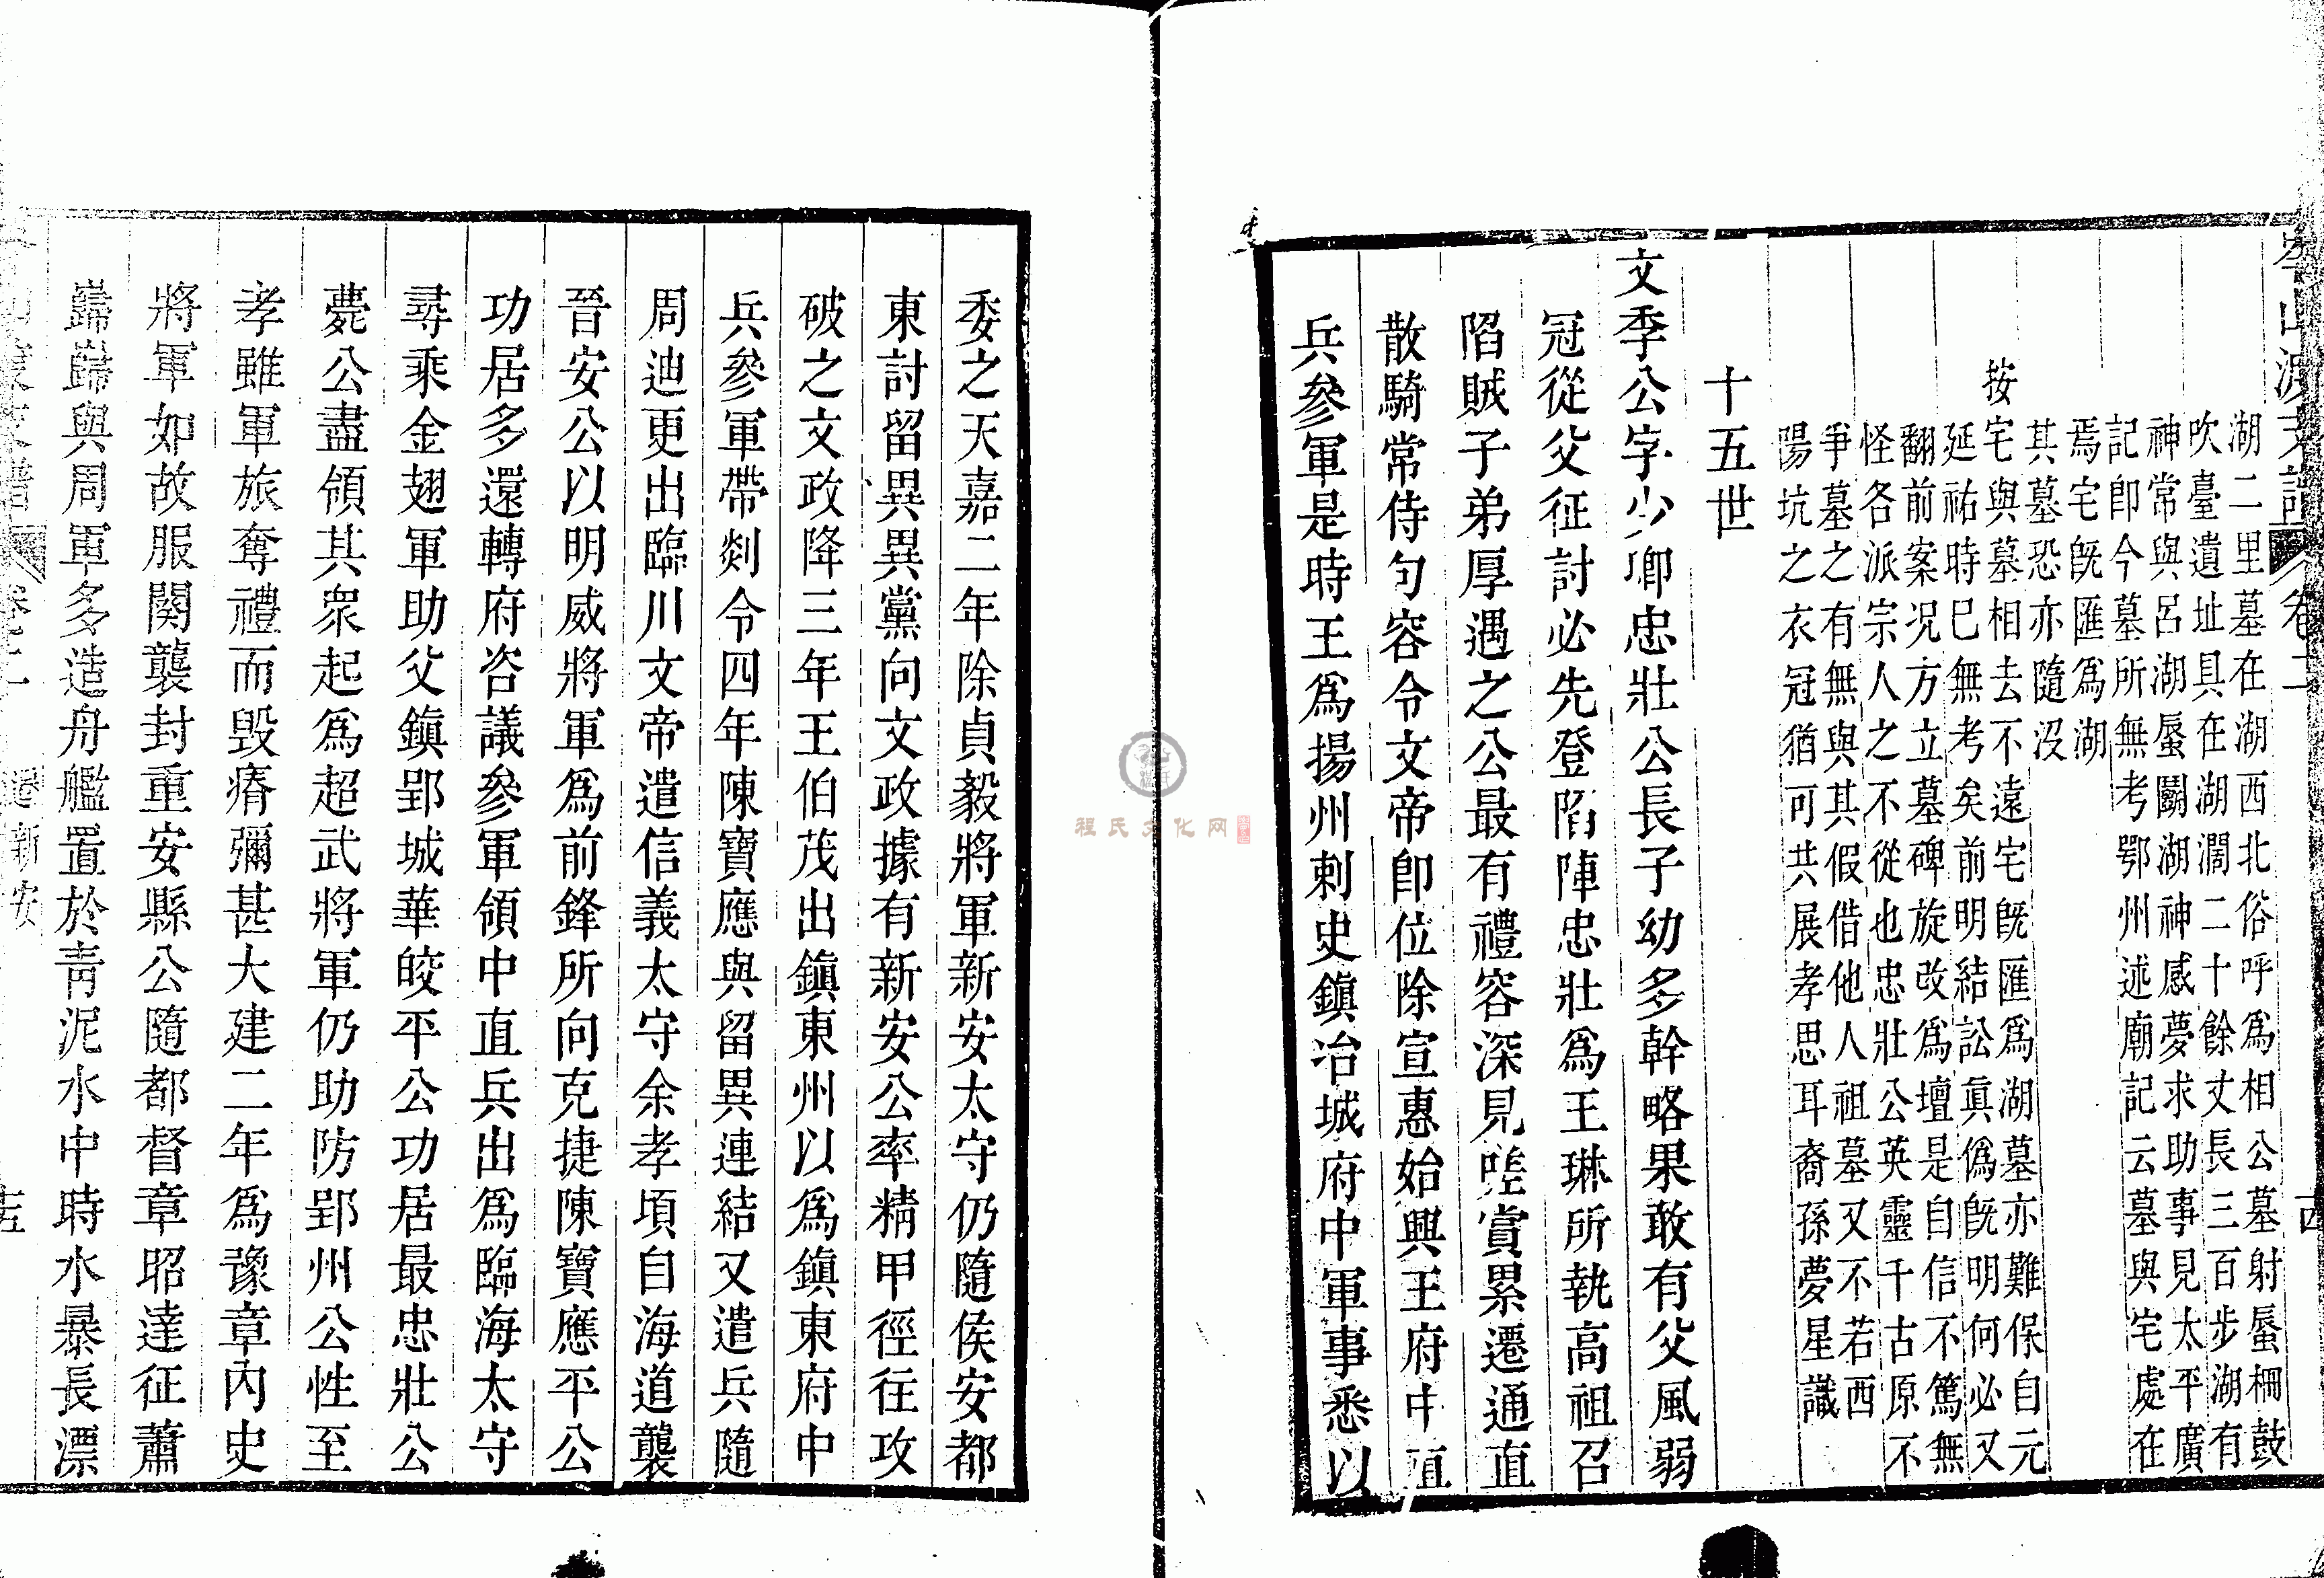 率山派支譜 卷二 十四
湖二里墓在湖西北俗呼爲相公墓射蜃柵鼓
吹臺遺址具在湖濶二十餘丈長三百步湖有
神常與呂湖蜃鬭湖神感夢求助事見太平廣
記卽今墓所無考鄂州述廟記云墓與宅處在
焉宅旣匯爲湖
其墓恐亦隨沒
按宅與墓相去不遠宅旣匯爲湖墓亦難保自元
延祐時巳無考矣前明結訟眞僞旣明何必又
翻前案况方立墓碑旋改爲壇是自信不篤無
怪各派宗人之不從也忠壯公英靈千古原不
爭墓之有無與其假借他人祖墓又不若西
陽坑之衣冠猶可共展孝思耳裔孫夢星識
十五世
文季公字少卿忠壯公長子幼多幹略果敢有父風弱
冠從父征討必先登陷陣忠壯爲王琳所執高祖召
陷賊子弟厚遇之公最有禮容深見嗟賞累遷通直
散騎常侍句容令文帝卽位除宣惠始興王府中直
兵參軍是時王爲揚州刺史鎮冶城府中軍事悉以
委之天嘉二年除貞毅將軍新安太守仍隨侯安都
東討留異異黨向文政據有新安公率精甲徑往攻
破之文政降三年王伯茂出鎮東州以爲鎮東府中
兵參軍帶剡令四年陳寶應與留異連結又遣兵隨
周迪更出臨川文帝遣信義太守余孝頃自海道襲
晉安公以明威將軍爲前鋒所向克捷陳寶應平公
功居多還轉府咨議參軍領中直兵出爲臨海太守
尋乘金翅軍助父鎮郢城華皎平公功居最忠壯公
薨公盡領其衆起爲超武將軍仍助防郢州公性至
孝雖軍旅奪禮而毁瘠彌甚大建二年爲豫章內史
將軍如故服闋襲封重安縣公隨都督章昭達征蕭
巋巋與周軍多造舟艦置於靑泥水中時水暴長漂
卷二 遷新安 十五
程氏文化网